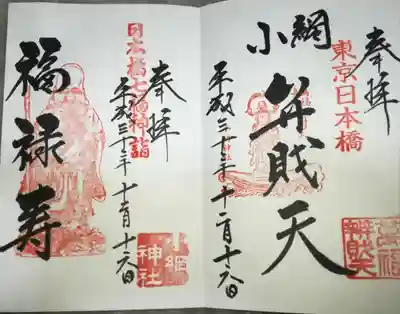 奉拝
東京日本橋
小網
弁財天
平成三十年十二月十六日
奉拝
日本橋七福神詣
平成三十年十二月十六日
福禄寿
小網
神社